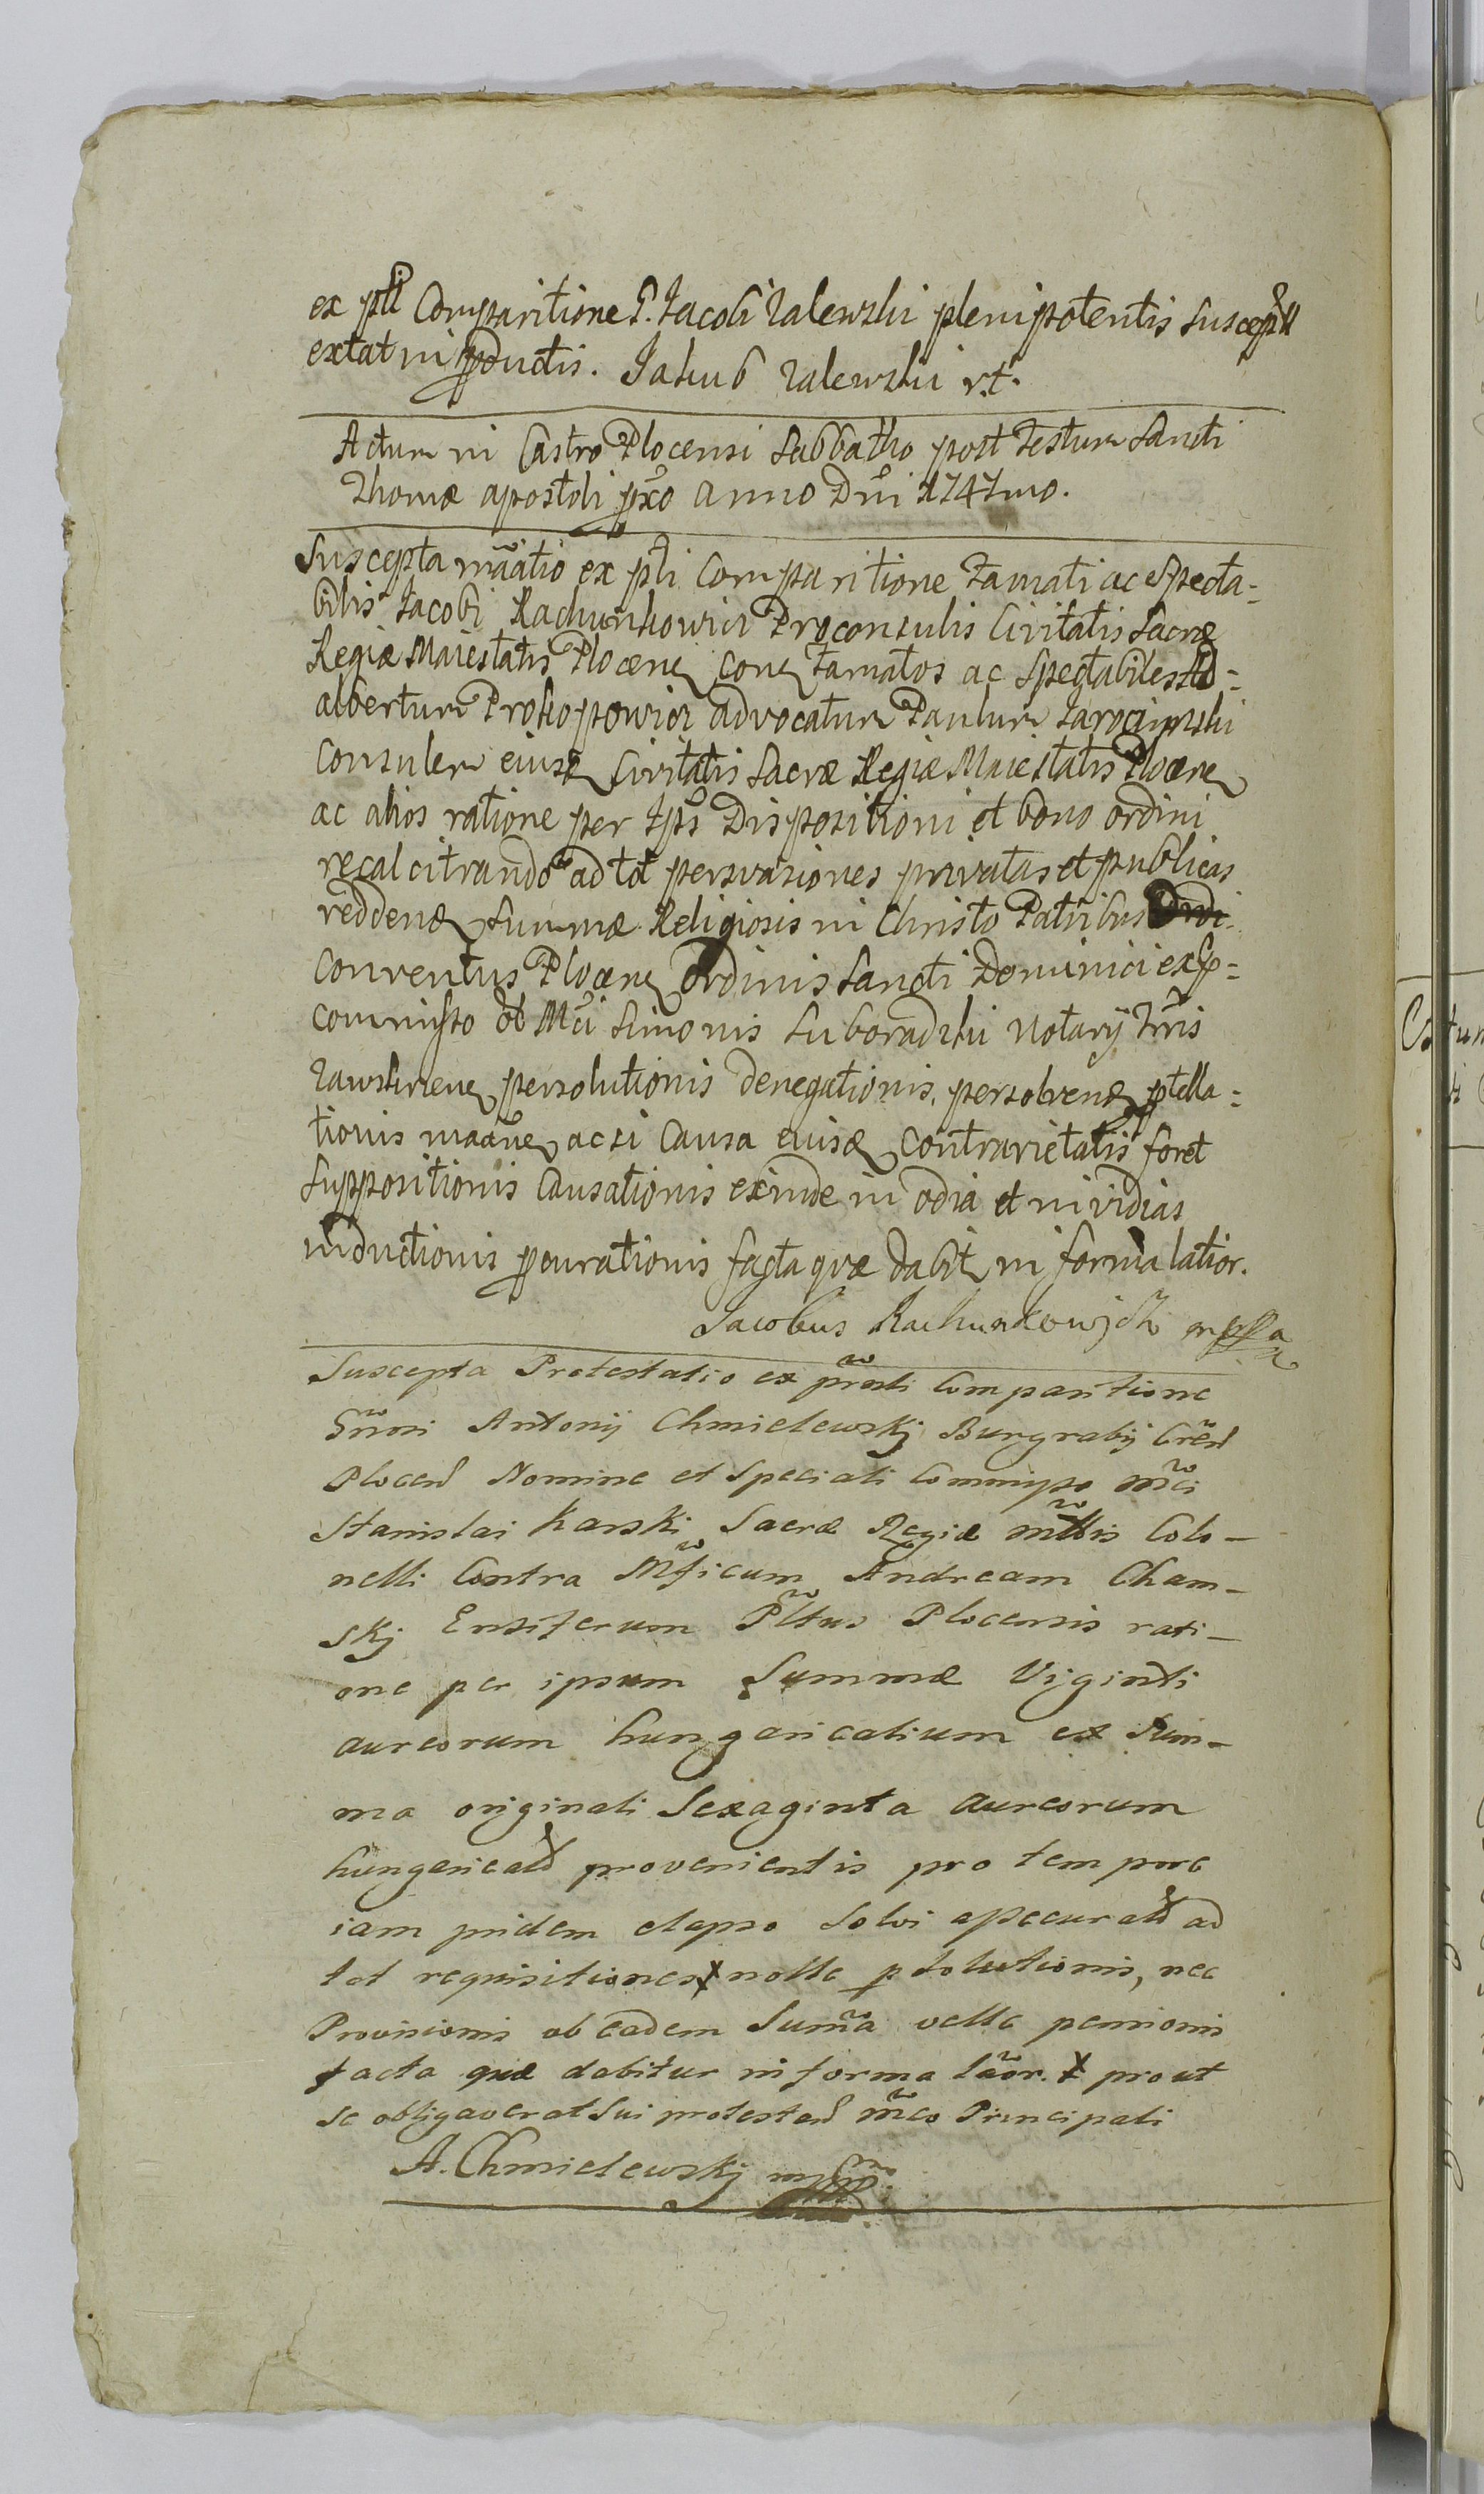 ex pñti Comparitione G. Jacobi Zalewski plenipotentis suscept
extat in productis. Jakub Zalewski r.t.
Actum in Castro Plocensi Sabbatho post Festum Sancti
Thomæ apostoli pxo anno Dñi 1747mo.
Suscepta mãatio ex pñti Comparitione Famati ac Specta=
bilis Jacobi Rachunkowicz Proconsulis Civitatis Sacræ
Regiæ Maiestatis Plocen con Famatos ac Spectabiles Ad=
albertum Prokopowicz advocatum Paulum Jarocinski
Consulem eiusd Civitatis Sacræ Regiæ Maiestatis Plocen
ac alios ratione per Ipso Dispositioni et bono ordini
recalcitrando ad tot persvasiones privatas et publicas
reddend Summæ Religiosis in Christo Patribus
Conventus Plocen Ordinis Sancti Dominici ex sp=
commisso ol Mci Simonis Suboradzki Notarÿ Tris
Zawskrzen persolutionis denegationis, persolvend ptella=
tionis maane ac si Causa eiusd contrarietatis foret
Suppositionis Causationis exinde in odia et invidias
inductionis procurationis facta quæ dabit in forma latior.
Jacobus Rachunkowicz mppa
Suscepta Protestatio ex prnti Comparitione
Gnrosi Antonij Chmielewskj Burgrabij Cren
Plocen Nomine et Speciali Commisso Mci
Stanislai Karski Sacræ Regiæ Mttis Colo-
nelli Contra Mficum Andream Cham-
skj Ensiferum Plttus Plocensis rati-
one per ipsum Summæ Viginti
aureorum hungaricalium ex Sum-
ma originali Sexaginta aureorum
hungarical provenientis pro tempore
iam pridem elapso Solvi assecurat ad
tot requisitiones x nolle psolutionis, nec
Provisionis ab eadem Summa velle pensionis
facta quæ dabitur in forma laor. x prout
se obligaverat Sui protestan Mco Principali
A. Chmielewskj mp